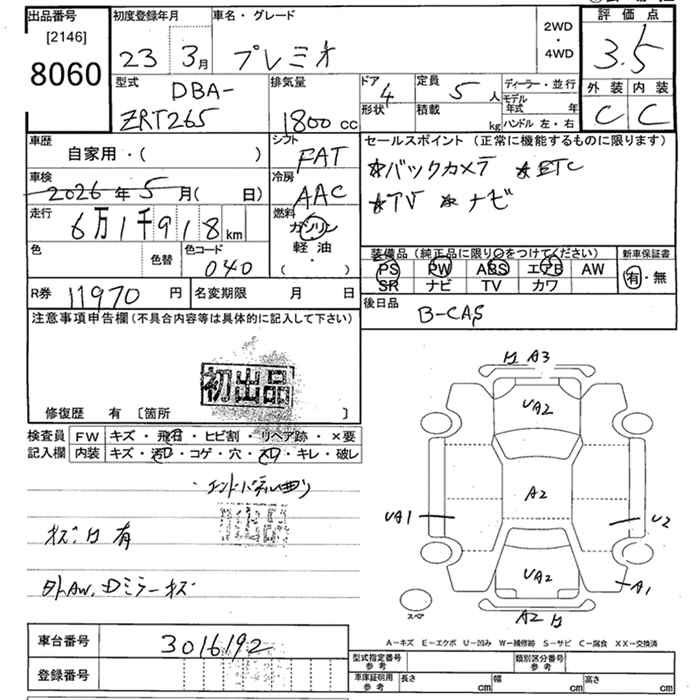 出品番号
[2146]
8060
初度登録年月
23 3月
車名・グレード
プレミオ
2WD
・
4WD
評価点
3.5
外装 内装
C C
型式
DBA-
ZRT265
排気量
1800cc
ドア
4
定員
5人
ディーラー・並行
モデル年式 年
形状
積載
kg
ハンドル 左・右
車歴
自家用・( )
シフト
FAT
セールスポイント (正常に機能するものに限ります)
☆バックカメラ ☆ETC
☆TV ☆ナビ
車検
2026年5月( 日)
冷房
AAC
走行
6万1千918km
燃料
ガソリン
軽油
・
( )
色
色替
色コード
040
装備品 (純正品に限り○をつけてください)
PS PW ABS エアB AW
SR ナビ TV カワ
新車保証書
有・無
R券 11970円
名変期限 月 日
後日品
B-CAS
注意事項申告欄 (不具合内容等は具体的に記入して下さい)
初出品
修復歴 有 [箇所 ]
検査員
記入欄
FW キズ・飛石・ヒビ割・リペア跡・×要
内装 キズ・汚れ・コゲ・穴・スレ・キレ・破レ
・エンドパネル曲り
キズ、H有
外AW、Dミラーキズ
H A3
UA2
A2
UA1
U2
UA2
A1
A2 H
スペア
A－キズ E－エクボ U－凹み W－補修跡 S－サビ C－腐食 XX－交換済
車台番号 3016192
登録番号
型式指定番号
参考
類別区分番号
参考
車庫証明用
参考
長さ cm
幅 cm
高さ cm